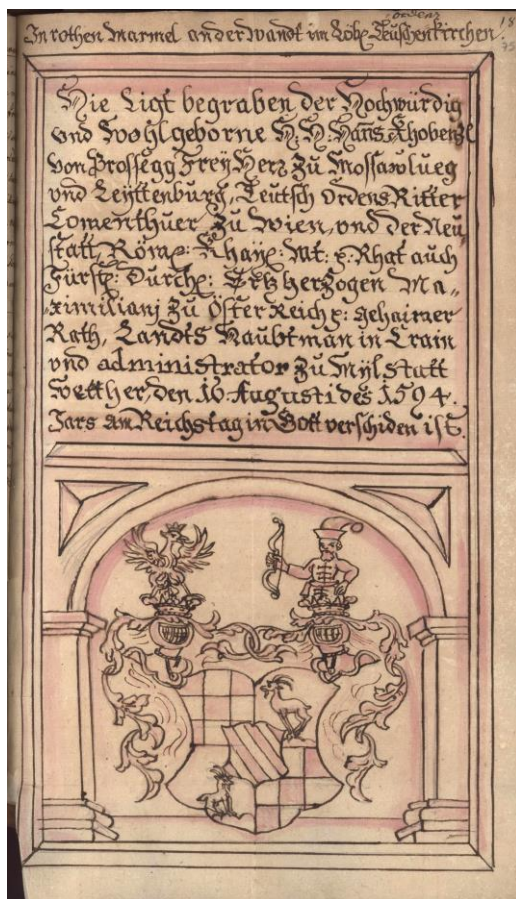 ordens
In rothen Marmel an der Wandt im Löbl: Teüschenkirchen.
Hie Ligt begraben der Hochwürdig
vnd Wohlgeborne H: H: Hanß Khobenzl
von Prossegg FreyHerz zu Mossawlueg
vnd Leyttenburg, Teutsch Ordens Ritter
Comenthuer zu Wien, vnd der Neu
statt, Röm: Khay: Mt: Rhgt auch
Fürstl: Durchl: Ertzherzogen Ma=
ximilianj zu Österreich gehaimer
Rath, Landts Haubtman in Crain
vnd administrator zu Mylstatt
Wellher, den 16 Augusti des 1594.
Jars am Reichstag in Gott verschiden ist.